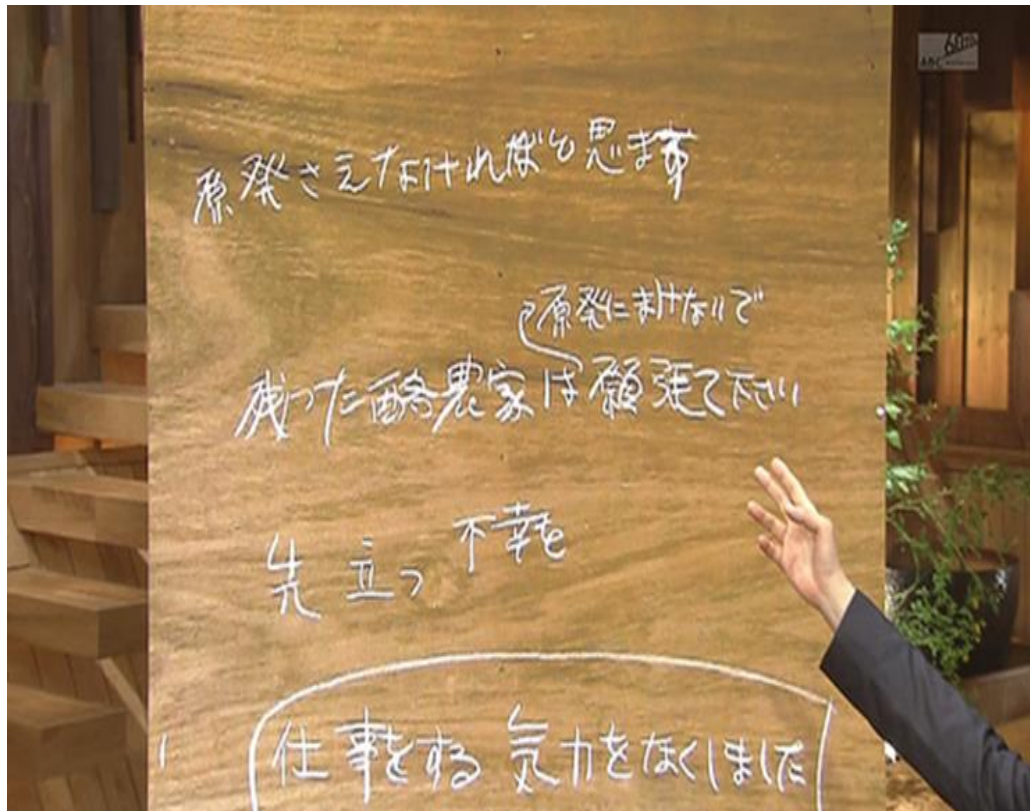 ABC
原発さえなければと思ます
原発にまけないで
残った酪農家は願張て下さい
先立つ不幸を
仕事をする気力をなくしました